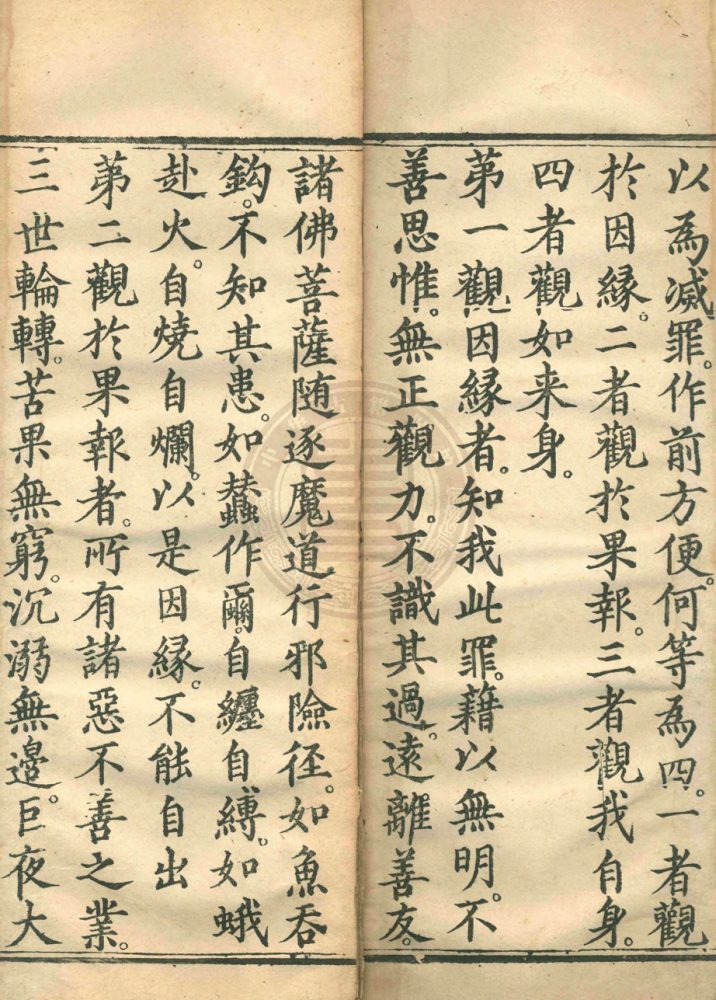 以為滅罪。作前方便。何等為四。一者觀
於因緣。二者觀於果報。三者觀我自身。
四者觀如来身。
第一觀因緣者。知我此罪。藉以無明。不
善思惟。無正觀力。不識其過。遠離善友。
諸佛菩薩随逐魔道行邪險径。如魚吞
鈎。不知其患。如蠶作薾。自纏自縛。如蛾
赴火。自燒自爛。以是因緣。不能自出
第二觀於果報者。所有諸惡不善之業。
三世輪轉。苦果無窮。沉溺無邉。巨夜大